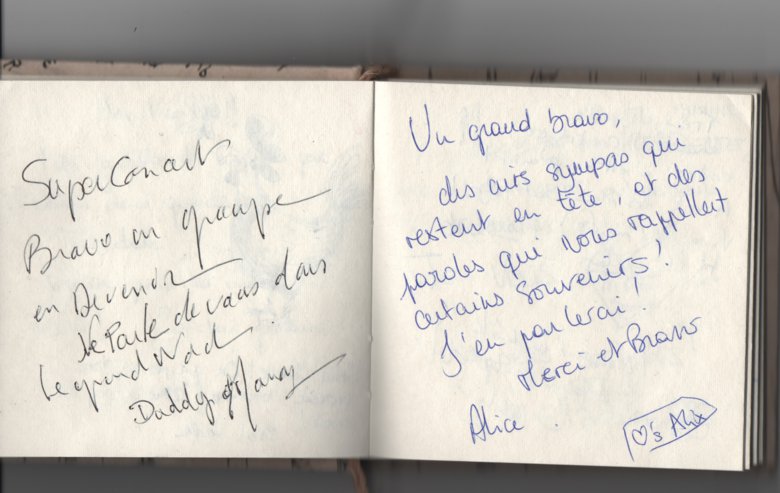 Super Concert
Bravo au groupe
en Devenir
Je Parle de vous dans
Le grand
Daddy
Un grand bravo,
des airs sympas qui
restent en tête, et des
paroles qui nous rappellent
certains souvenirs !
J'en parlerai !
Merci et Bravo
Alice .
♡'s Alix